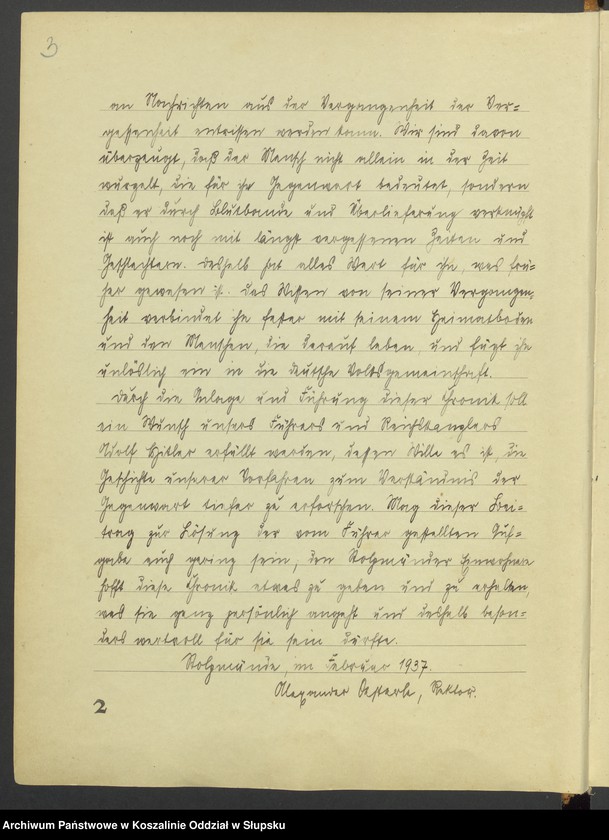 3
an Nachrichten aus der Vergangenheit der Ver=
gessenheit entrissen werden kann. Wir sind davon
überzeugt, daß der Mensch nicht allein in der Zeit
wurzelt, die für ihn Gegenwart bedeutet, sondern
daß er durch Blutbande und Überlieferung verknüpft
ist auch noch mit längst vergessenen Zeiten und
Geschlechtern. Deshalb hat alles Wert für ihn, was frü=
her gewesen ist. Das Wissen von seiner Vergangen=
heit verbindet ihn fester mit seinem Heimatboden
und den Menschen, die darauf leben, und fügt ihn
unlöslich ein in die deutsche Volksgemeinschaft.
Durch die Anlage und Führung dieser Chronik soll
ein Wunsch unsers Führers und Reichskanzlers
Adolf Hitler erfüllt werden, dessen Wille es ist, die
Geschichte unserer Vorfahren zum Verständnis der
Gegenwart tiefer zu erforschen. Mag dieser Bei=
trag zur Lösung der vom Führer gestellten Auf=
gabe auch gering sein, den Stolpmünder Einwohnern
hofft diese Chronik etwas zu geben und zu erhalten,
was sie ganz persönlich angeht und deshalb beson=
ders wertvoll für sie sein dürfte.
Stolpmünde, im Februar 1937.
Alexander Oesterle, Rektor.
2
Archiwum Państwowe w Koszalinie Oddział w Słupsku